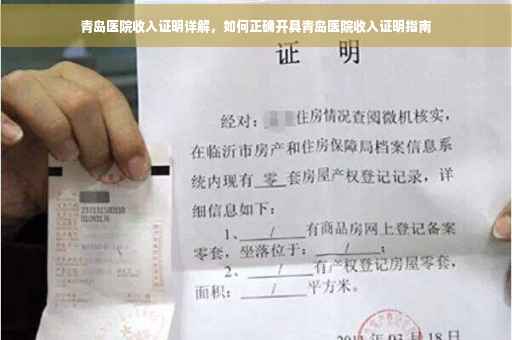 青岛医院收入证明详解，如何正确开具青岛医院收入证明指南
证 明
经对：住房情况查阅微机核实，
在临沂市房产和住房保障局档案信息系
统内现有 零 套房屋产权登记记录，详
细信息如下：
1、 / 有商品房网上登记备案
零套，坐落位于： / ；
2、 / 有产权登记房屋零套，
面积： / 平方米。
03月18日